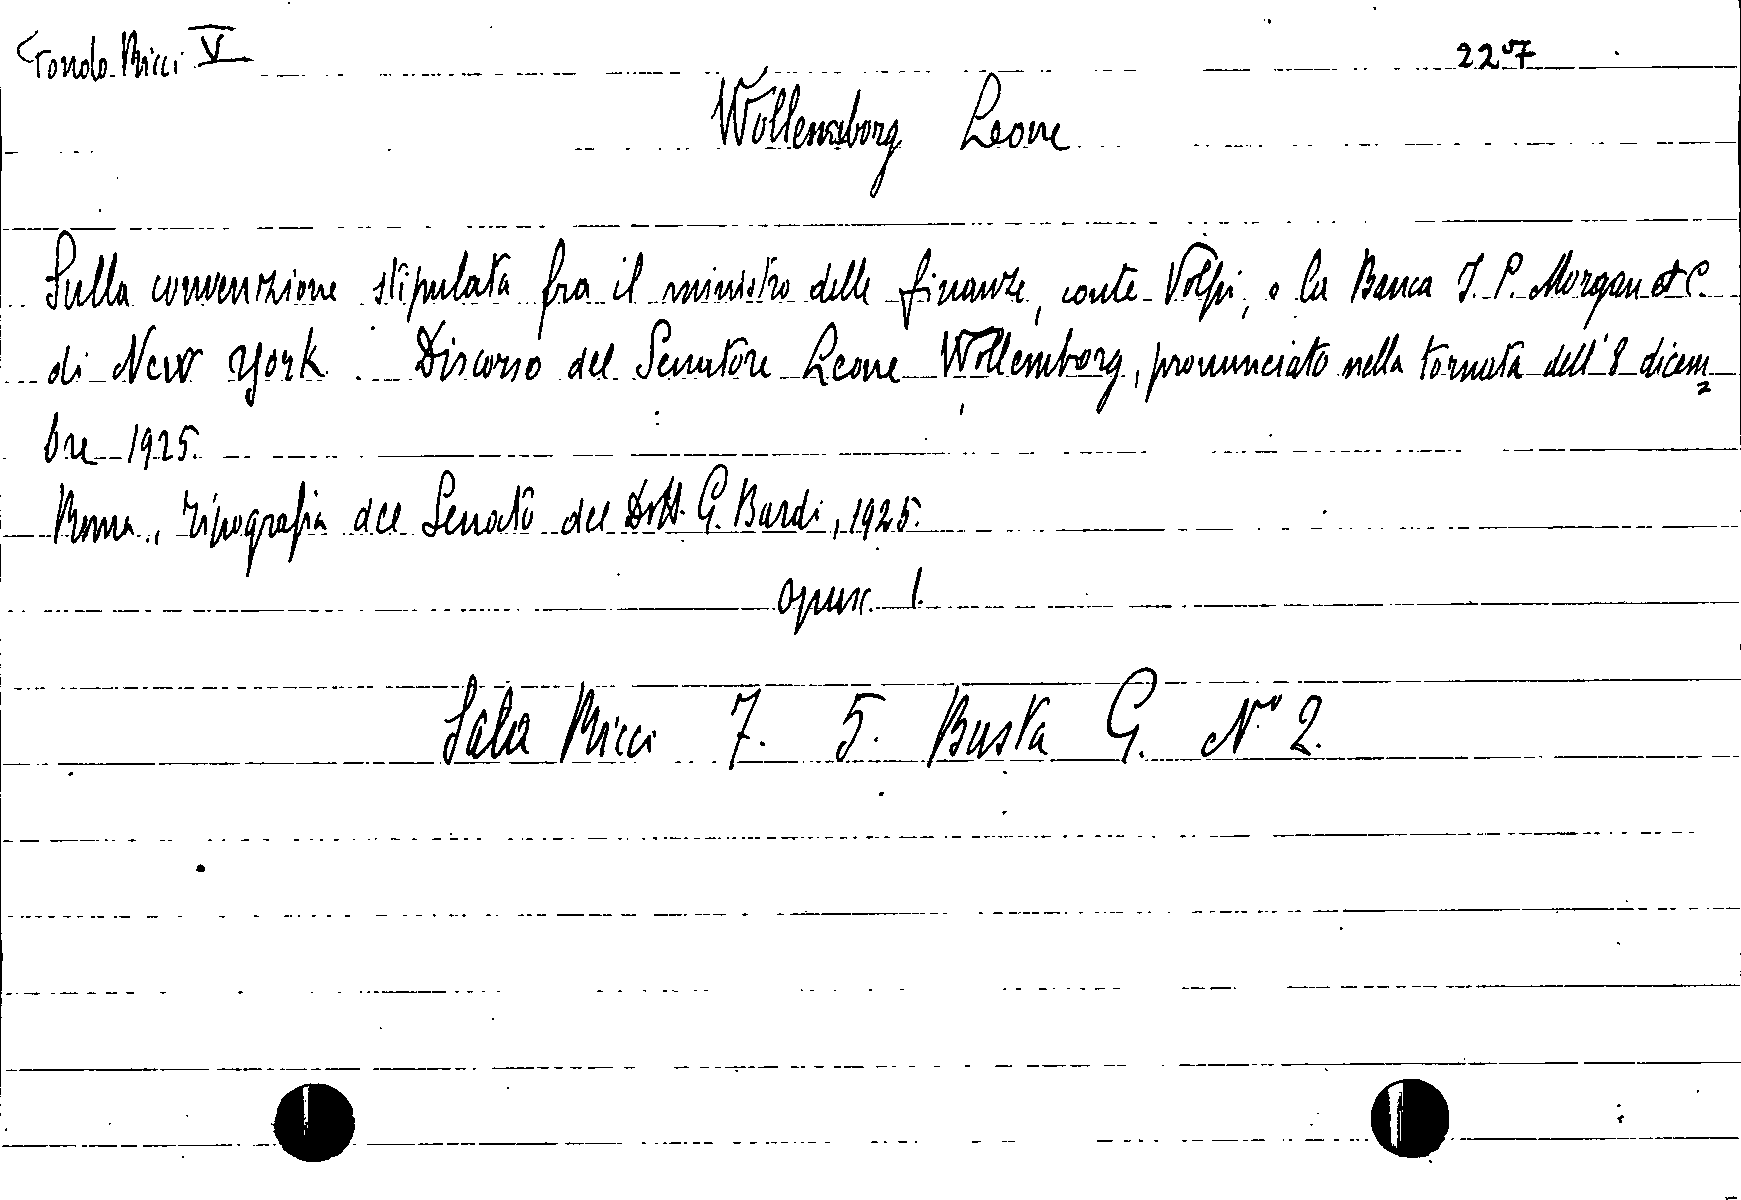 Fondo Ricci V
2207
Wollemborg Leone
Sulla convenzione stipulata fra il ministro delle finanze, conte Volpi, e la Banca J. P. Morgan et C.
di New York. Discorso del Senatore Leone Wollemborg, pronunciato nella tornata dell'8 dicem=
bre 1925.
Roma, Tipografia del Senato del Dott. G. Bardi, 1925.
opusc. 1.
Sala Ricci 7. 5. Busta G. N° 2.